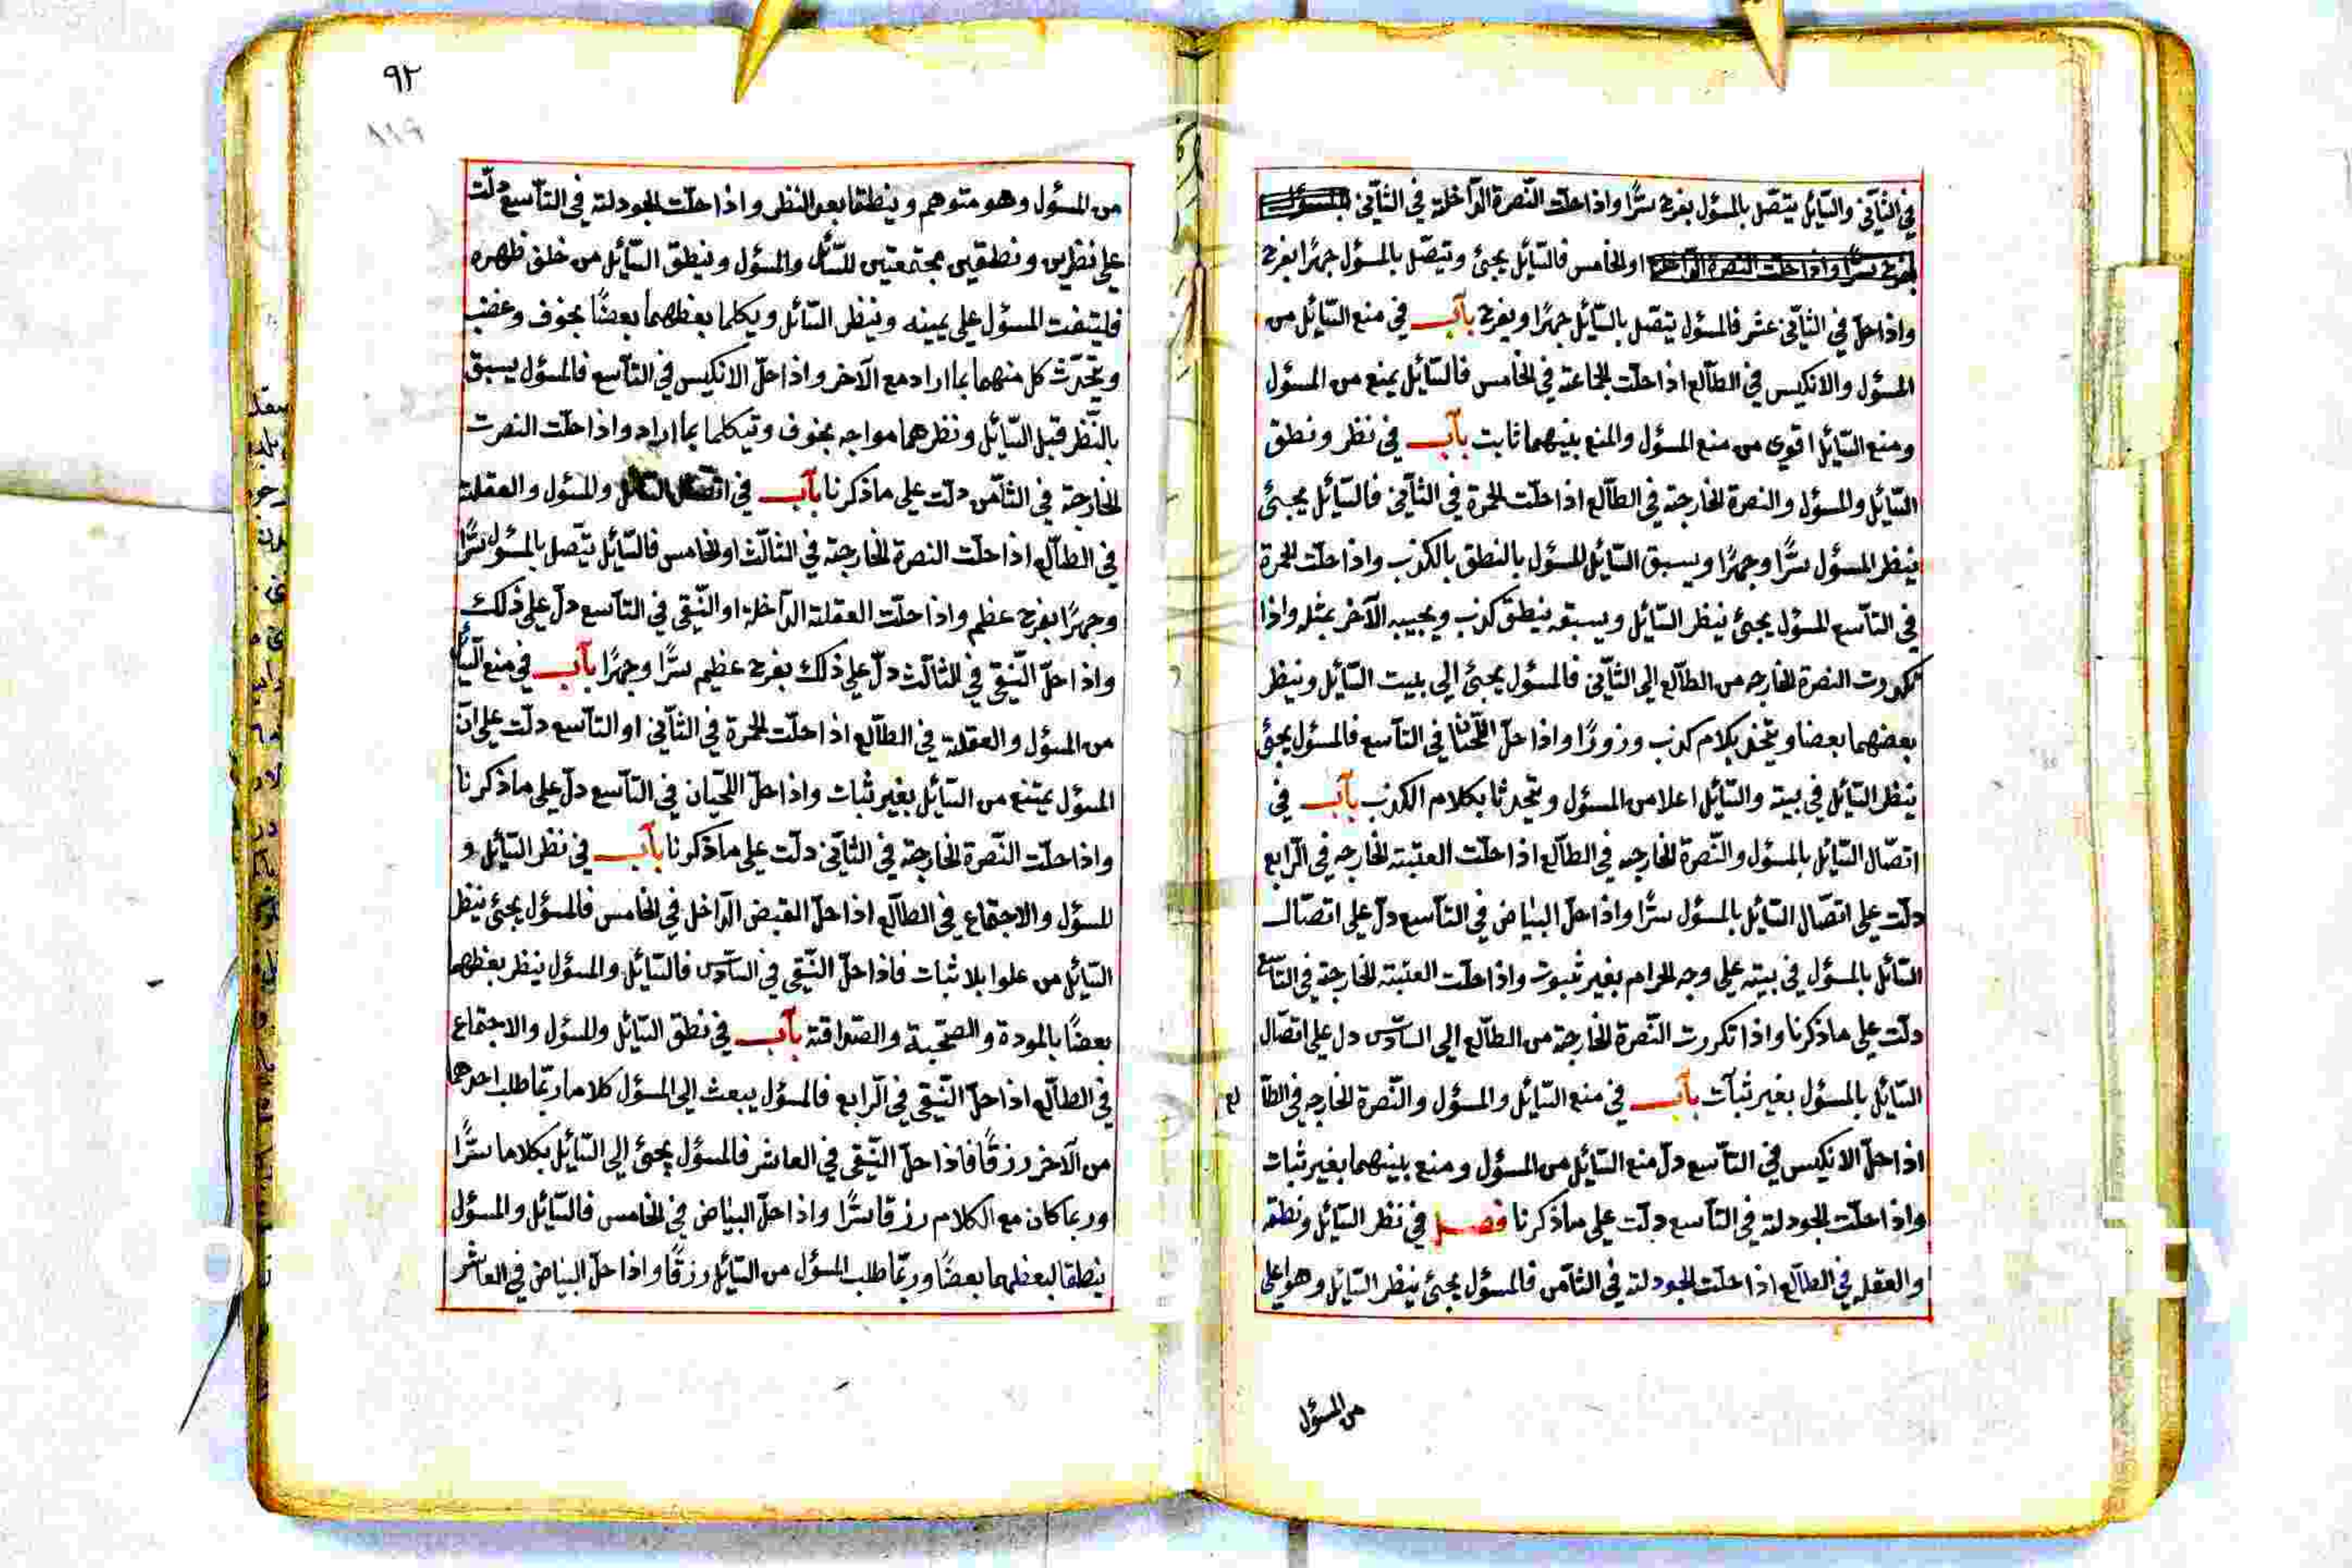 في الثّآني والسّآئل يتصّل بالمسؤل بفرح سرًّا واذا حلّت النّصرة الدّآخلة في الثّآني
اولخامس فالسّآئل يجئ ويتصّل بالمسؤل جهرًا بفرح
واذا حلّ في الثّآني عشر فالمسؤل يتصّل بالسّآئل جهرًا ويفرح بآب في منع السّآئل من
المسؤل والانكيس في الطّآلع اذا حلّت الجماعة في الخامس فالسّآئل يمنع من المسؤل
ومنع السّآئل اقوى من منع المسؤل والمنع بينهما ثابت بآب في نظر ونطق
السّآئل والمسؤل والنصرة الخارجة في الطّآلع اذا حلّت الحمرة في الثّآني فالسّآئل يجئ
ينظر المسؤل سرًّا وجهرًا ويسبق السّآئل المسؤل بالنطق بالكذب واذا حلّت الحمرة
في التّآسع المسؤل يجئ ينظر السّآئل ويسبقه ينطق كذب ويجيبه الآخر بمثله واذا
تكررت النصرة الخارجه من الطّآلع الى الثّآني فالمسؤل يجئ الى بيت السّآئل وينظر
بعضهما بعضا بكلام كذب وزورًا واذا حلّ في التّآسع فالمسؤل يجئ
ينظر السّآئل في بيته والسّآئل اعلا من المسؤل ويتحدثا بكلام الكذب بآب في
اتصّال السّآئل بالمسؤل والنّصرة الخارجه في الطّآلع اذا حلّت العتبة الخارجه في الرّابع
دلّت على اتصّال السّآئل بالمسؤل سرًّا واذا حلّ البيٰاض في التّآسع دلّ على اتصّال
السّآئل بالمسؤل في بيته على وجه الحرام بغير ثبوت واذا حلّت العتبة الخارجة في التّآسع
دلّت على ما ذكرنا واذا تكررت النّصرة الخارجة من الطّآلع الى السّآدس دل على اتصّال
السّآئل بالمسؤل بغير ثبٰات بآب في منع السّآئل والمسؤل والنّصرة الخارجه في الطّآ لع
اذا حلّ الانكيس في التّآسع دلّ منع السّآئل من المسؤل ومنع بينهما بغير ثبات
واذا حلّت الجودلة في التّآسع دلّت على ما ذكرنا فصل في نظر السّآئل ونطقه
والعقله في الطّآلع اذا حلّت الجودلة في الثّآمن فالمسؤل يجئ ينظر السّآئل وهو اعلى
من المسؤل
٩٢
١١٩
من المسؤل وهو متوهم وينطقا بعد النظر واذا حلّت الجودلة في التّآسع دلّت
على نظرين ونطقين مجتمعتين للسّآئل والمسؤل وينطق السّآئل من خلف ظهره
فليتفت المسؤل على يمينه وينظر السّآئل ويكلما بعظهما بعضًا بخوف وغضب
ويتحدّث كل منهما بما اراد مع الآخر واذا حلّ الانكيس في التّآسع فالمسؤل يسبق
بالنّظر قبل السّآئل ونظرهما مواجه بخوف وتيكلما بما اراد واذا حلّت النصرت
الخارجة في الثّآمن دلّت على ما ذكرنا بآب في اتصال السّآئل والمسؤل والعقلة
في الطّآلع اذا حلّت النصرة الخارجة في الثالث اولخامس فالسّآئل يتّصل بالمسؤل سرًّا
وجهرًا بفرح عظم واذا حلّت العقلة الدّآخلة او النّقى في التّآسع دلّ على ذلك
واذا حلّ النّقى في الثّآلث دلّ على ذلك بفرح عظيم سرًّا وجهرًا بآب في منع السّآئل
من المسؤل والعقلة في الطّآلع اذا حلّت الحمرة في الثّآني او التّآسع دلّت على انّ
المسؤل يمتنع من السّآئل بغير ثبات واذا حلّ اللّحيان في التّآسع دلّ على ما ذكرنا
واذا حلّت النّصرة الخارجة في الثّآني دلّت على ما ذكرنا بآب في نظر السّآئل و
المسؤل والاجتماع في الطّآلع اذا حلّ القبض الدّاخل في الخامس فالمسؤل يجئ ينظر
السّآئل من علوا بلا ثبات فاذا حلّ النّقى في السّآدس فالسّآئل والمسؤل ينظر بعظهما
بعضًا بالمودة والصّحبة والصّداقة بآب في نطق السّآئل والمسؤل والاجتماع
في الطّآلع اذا حلّ النّقى في الرّابع فالمسؤل يبعث الى المسؤل كلاما ربّما طلب احدهما
من الآخر رزقًا فاذا حلّ النّقى في العاشر فالمسؤل يجئ الى السّآئل بكلاما سرًّا
وربما كان مع الكلام رزقا سرًّا واذا حلّ البيٰاض في الخامس فالسّآئل والمسؤل
ينطقا لبعظهما بعضًا وربّما طلب المسؤل من السّآئل رزقًا واذا حلّ البيٰاض في العاشر